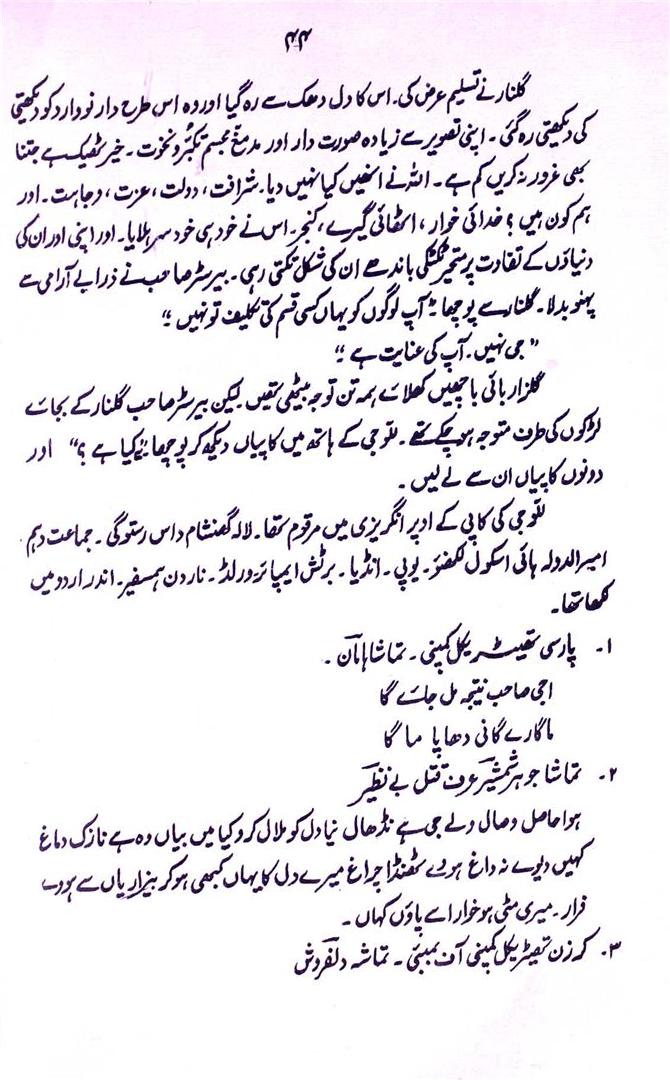 ۴۴
گلنار نے تسلیم عرض کی۔ اس کا دل دھک سے رہ گیا اور وہ اس طرح دار نووارد کو دیکھتی
کی دیکھتی رہ گئی۔ اپنی تصویر سے زیادہ صورت دار اور مدمغ مجسم تکبّر و نخوت۔ خیر ٹھیک ہے جتنا
بھی غرور نہ کریں کم ہے۔ اللہ نے انھیں کیا نہیں دیا۔ شرافت، دولت، عزت، وجاہت۔ اور
ہم کون ہیں؟ خدائی خوار، اٹھائی گیرے، کنجر۔ اس نے خود ہی خود سر ہلایا۔ اور اپنی اور ان کی
دنیاؤں کے تفاوت پر متحیر ٹکٹکی باندھے ان کی شکل تکتی رہی۔ بیرسٹر صاحب نے ذرا بے آرامی سے
پہلو بدلا۔ گلنار سے پوچھا "آپ لوگوں کو یہاں کسی قسم کی تکلیف تو نہیں۔"
"جی نہیں۔ آپ کی عنایت ہے۔"
گلزار بائی باچھیں کھلائے ہمہ تن توجہ بیٹھی تھیں۔ لیکن بیرسٹر صاحب گلنار کے بجائے
لڑکوں کی طرف متوجہ ہو چکے تھے۔ للّو جی کے ہاتھ میں کاپیاں دیکھ کر پوچھا "یہ کیا ہے؟" اور
دونوں کاپیاں ان سے لے لیں۔
للّو جی کی کاپی کے اوپر انگریزی میں مرقوم تھا۔ لالہ گھنشام داس رستوگی۔ جماعت دہم
امیر الدولہ ہائی اسکول لکھنؤ۔ یوپی۔ انڈیا۔ برٹش ایمپائر۔ ورلڈ۔ ناردن ہمسفیر۔ اندر اردو میں
لکھا تھا۔
۱۔ پارسی تھیٹریکل کمپنی۔ تماشا ہامان۔
اجی صاحب نتیجہ مل جائے گا
ما گا رے گا نی دھا پا ما گا
۲۔ تماشا جوہر شمشیر عرف قتل بے نظیر
ہوا حاصل وصال ولے جی ہے نڈھال نیا دل کو ملال کرو کیا میں بیاں وہ ہے نازک دماغ
کہیں دیوے نہ داغ ہووے ٹھنڈا چراغ میرے دل کا یہاں کبھی ہو کر بیزار یاں سے ہووے
فرار۔ میری مٹی ہو خوار اے پاؤں کہاں۔
۳۔ کرزن تھیٹریکل کمپنی آف بمبئی۔ تماشہ دلفروش